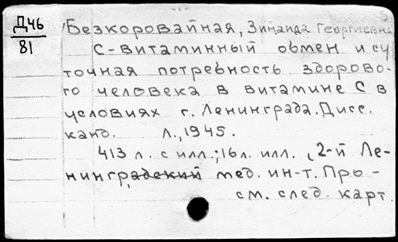 Д46
81
Безкоровайная, Зинаида Георгиевна
С-витаминный обмен и су
точная потребность здорово-
го человека в витамине С в
условиях г. Ленинграда. Дисс.
канд. Л., 1945.
413 л. с илл.; 16 л. илл. (2-й Ле-
нинградский мед. ин-т. Про -
см. след. карт.